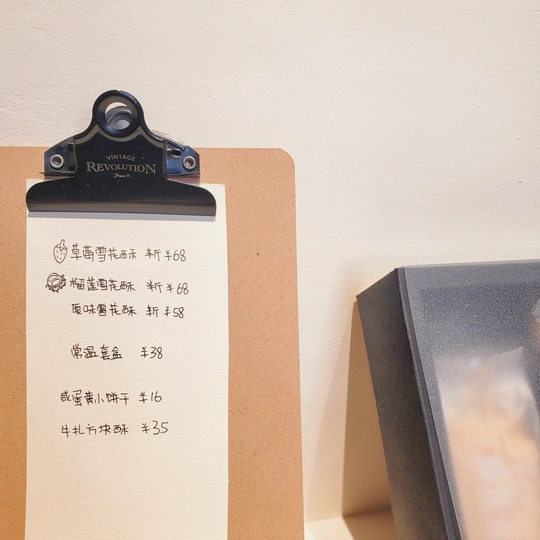 VINTAGE
REVOLUTION
草莓雪花酥 半斤 ¥68
榴莲雪花酥 半斤 ¥68
原味雪花酥 半斤 ¥58
常温套盒 ¥38
咸蛋黄小饼干 ¥16
牛扎方块酥 ¥35